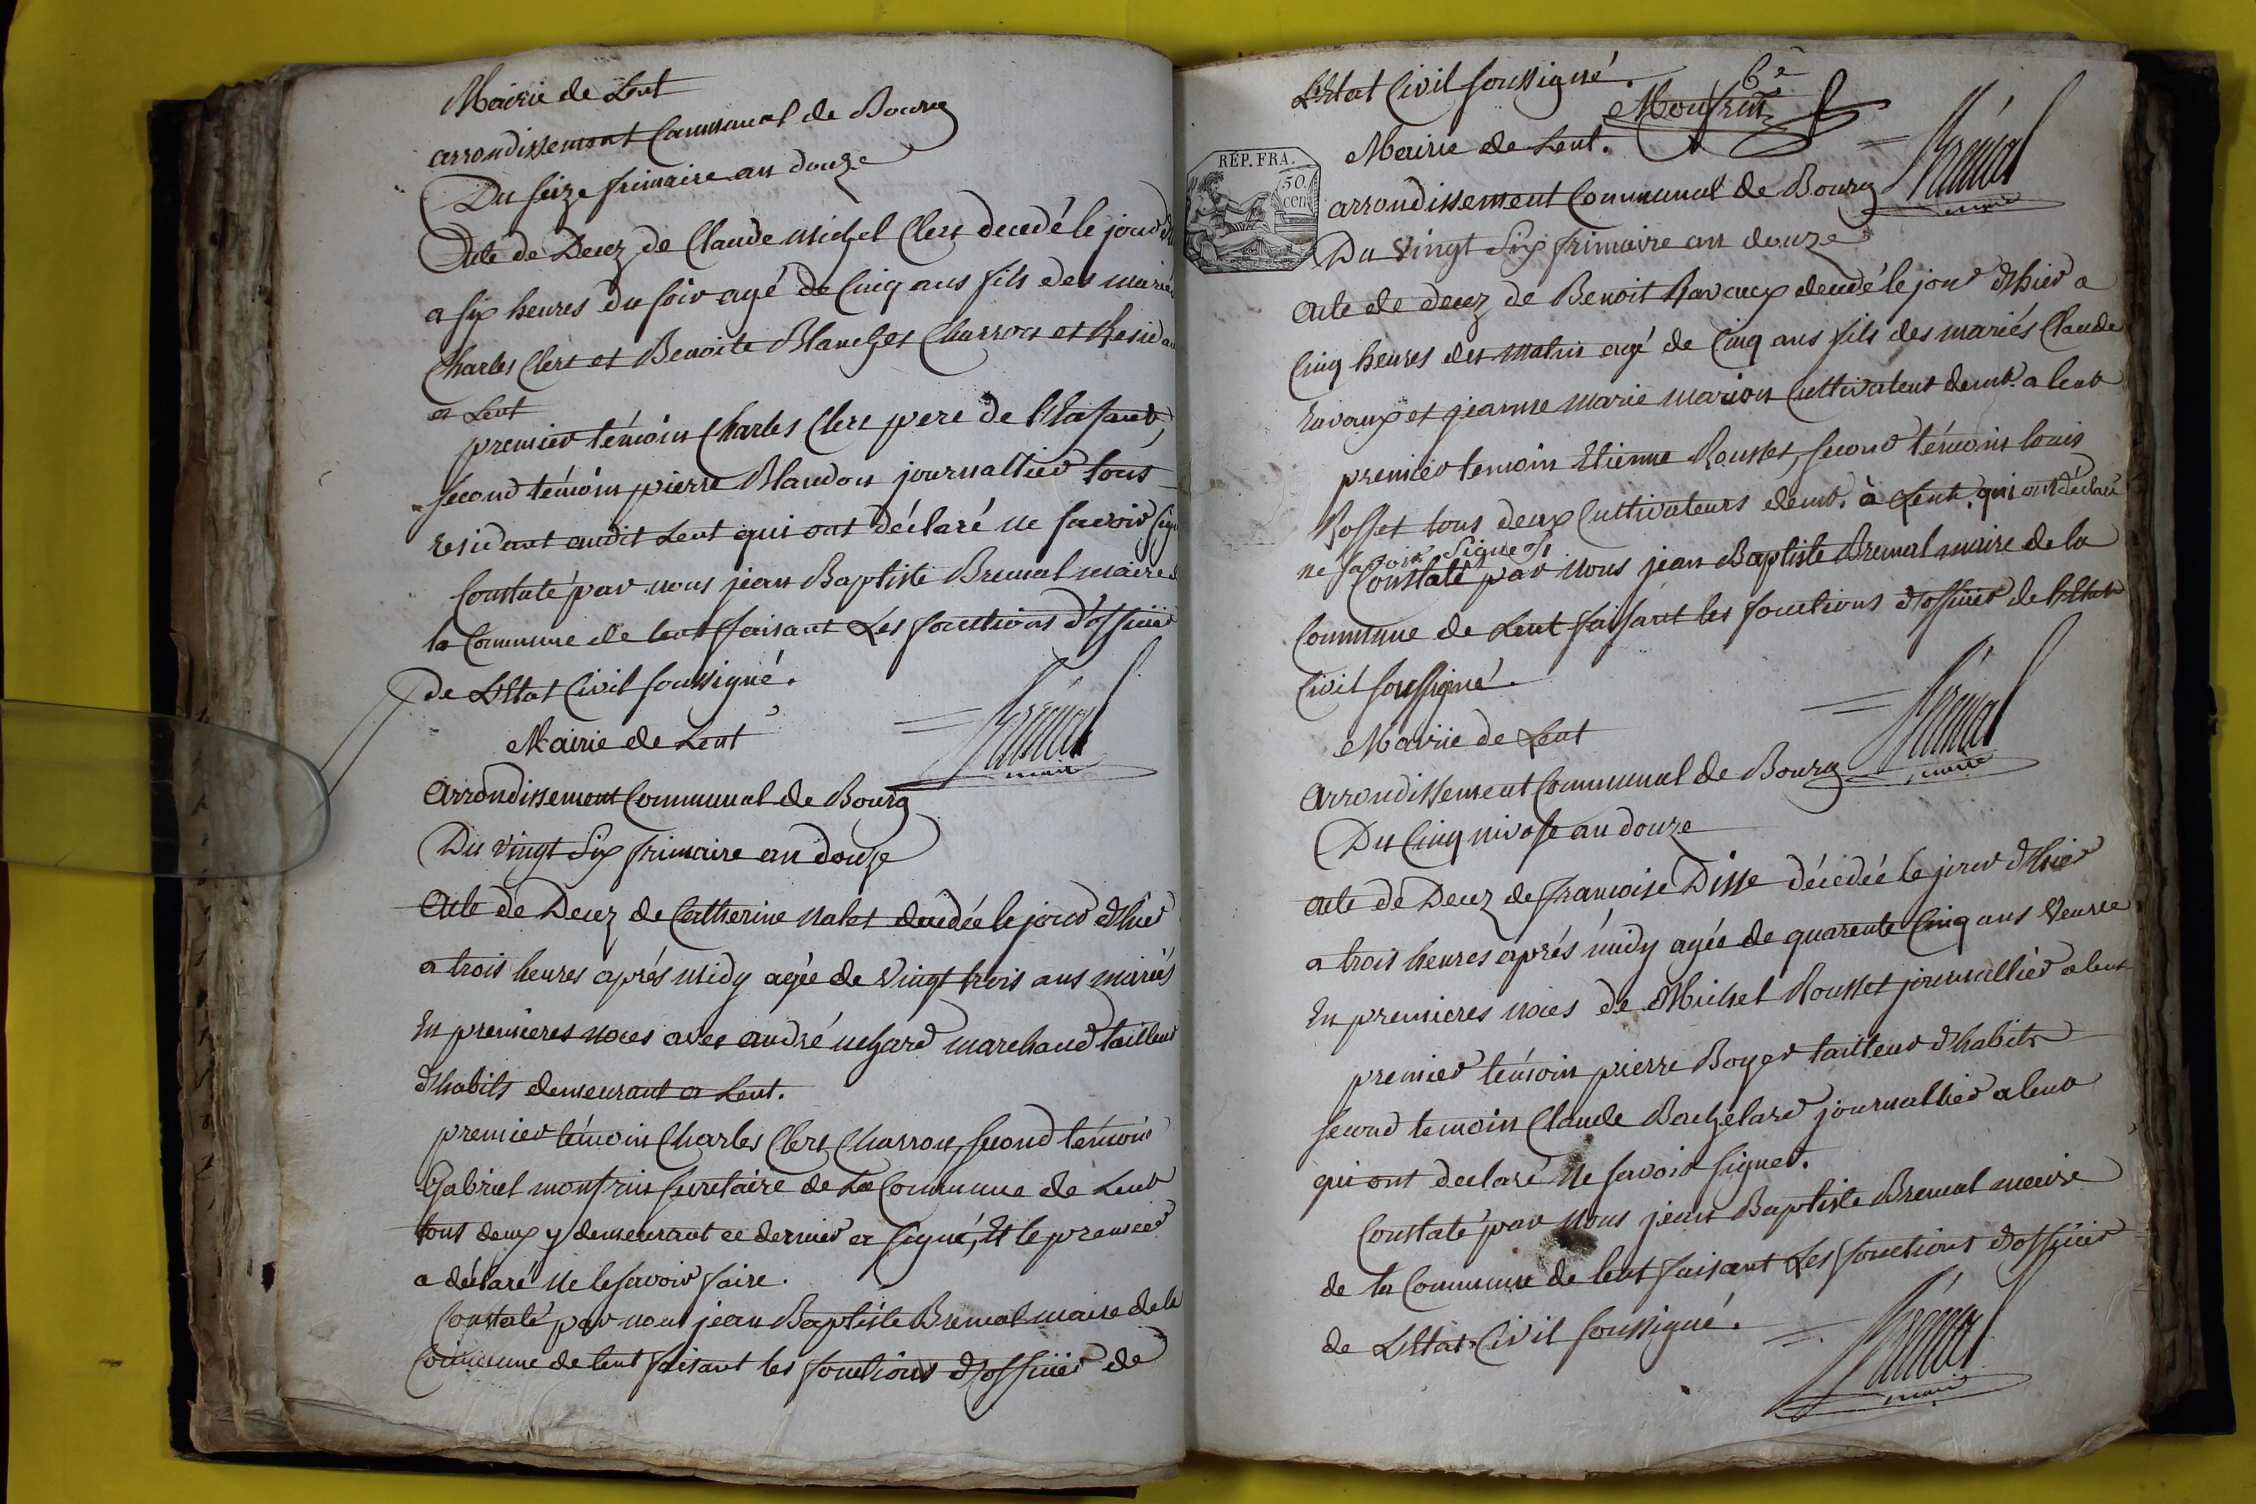 Mairie de Lent
arrondissement Communal de Bourg
Du seize frimaire an douze
Acte de Decez de Claude michel Clerc decedé le jour d
a six heures du soir agé de Cinq ans fils des mariés
Charles Clerc et Benoite Blanchet Charron et Residan
a Lent
premier témoin Charles Clerc pere de l'Enfant,
second témoin pierre Blandon journallier tous
residant audit Lent qui ont déclaré ne savoir sign
Constaté par nous jean Baptiste Bremal maire d
la Commune de lent faisant Les fonctions d'officier
de L'Etat Civil soussigné.
Bremal
maire
Mairie de Lent
Arrondissement Communal de Bourg
Du vingt Six frimaire an douze
Acte de Decez de Catherine nalet decedée le jour d'hier
a trois heures aprés midy agée de Vingt trois ans mariés
En premieres noces avec andré marchand tailleur
d'habits demeurant a Lent.
premier témoin Charles Clerc Charron, second témoin
Gabriel monfrin secretaire de La Commune de Lent
tous deux y demeurant ce dernier a signé, Et le premier
a déclaré ne le savoir faire.
Constaté par nous jean Baptiste Bremal maire de la
Commune de lent faisant les fonctions d'officier de
L'Etat Civil soussigné.
6e
Monfrin
Bremal
maire
RÉP. FRA.
50.
cen
Mairie de Lent.
arrondissement Communal de Bourg
Du Vingt Six frimaire an douze
Acte de decez de Benoit Ravaux decedé le jour d'hier a
Cinq heures du matin agé de Cinq ans fils des mariés Claude
Ravaux et jeanne marie marion Cultivateur demt. a lent
premier temoin Etienne Rousset, second témoin louis
Rosset tous deux Cultivateurs demt. à Lent. qui ont déclaré
ne savoir Signer
Constaté par nous jean Baptiste Bremal maire de la
Commune de Lent faisant les fonctions d'officier de l'Etat
Civil soussigné.
Bremal
maire
Mairie de Lent
Arrondissement Communal de Bourg
Du Cinq nivose an douze
Acte de Decez de francoise Disse décédée le jour d'hier
a trois heures aprés midy agée de quarente Cinq ans Veuve
En premieres noces de Michel Rousset journallier a lent
premier témoin pierre Boyer tailleur d'habits
second temoin Claude Bachelard journallier a lent
qui ont declaré ne savoir signer.
Constaté par nous jean Baptiste Bremal maire
de la Commune de lent faisant Les fonctions d'officier
de L'Etat Civil soussigné.
Bremal
maire